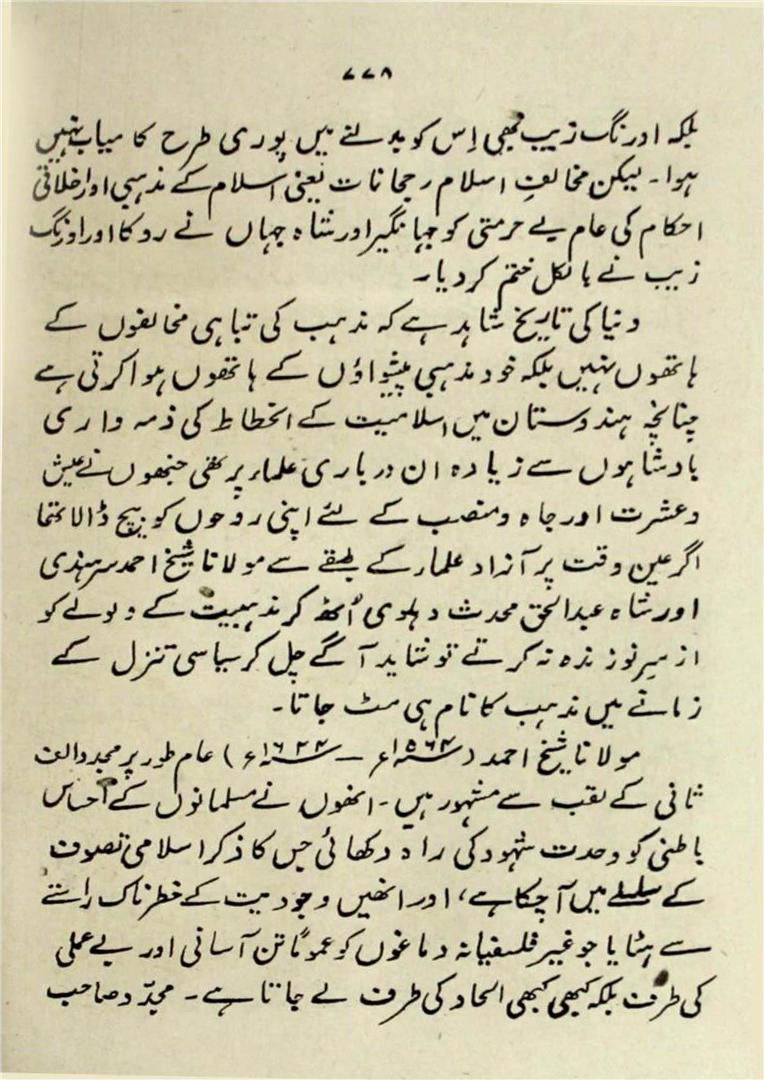 ۷۷۸
بلکہ اورنگ زیب بھی اِس کو بدلنے میں پوری طرح کامیاب نہیں
ہوا۔ لیکن مخالفِ اسلام رجحانات یعنی اسلام کے مذہبی اور اخلاقی
احکام کی عام بے حرمتی کو جہانگیر اور شاہ جہاں نے روکا اور اورنگ
زیب نے بالکل ختم کر دیا۔
دنیا کی تاریخ شاہد ہے کہ مذہب کی تباہی مخالفوں کے
ہاتھوں نہیں بلکہ خود مذہبی پیشواؤں کے ہاتھوں ہوا کرتی ہے
چنانچہ ہندوستان میں اسلامیت کے انحطاط کی ذمہ داری
بادشاہوں سے زیادہ ان درباری علماء پر تھی جنھوں نے عیش
و عشرت اور جاہ و منصب کے لئے اپنی روحوں کو بیچ ڈالا تھا
اگر عین وقت پر آزاد علماء کے طبقے سے مولانا شیخ احمد سرہندی
اور شاہ عبدالحق محدث دہلوی اُٹھ کر مذہبیت کے ولولے کو
از سرِ نو زندہ نہ کرتے تو شاید آگے چل کر سیاسی تنزل کے
زمانے میں مذہب کا نام ہی مٹ جاتا۔
مولانا شیخ احمد (۱۵۶۴ء – ۱۶۲۴ء) عام طور پر مجدد الف
ثانی کے لقب سے مشہور ہیں۔ انھوں نے مسلمانوں کے احساس
باطنی کو وحدت شہود کی راہ دکھائی جس کا ذکر اسلامی تصوف
کے سلسلے میں آ چکا ہے، اور انھیں وجودیت کے خطرناک راستے
سے ہٹایا جو غیر فلسفیانہ دماغوں کو عموماً تن آسانی اور بے عملی
کی طرف بلکہ کبھی کبھی الحاد کی طرف لے جاتا ہے۔ مجدّد صاحب